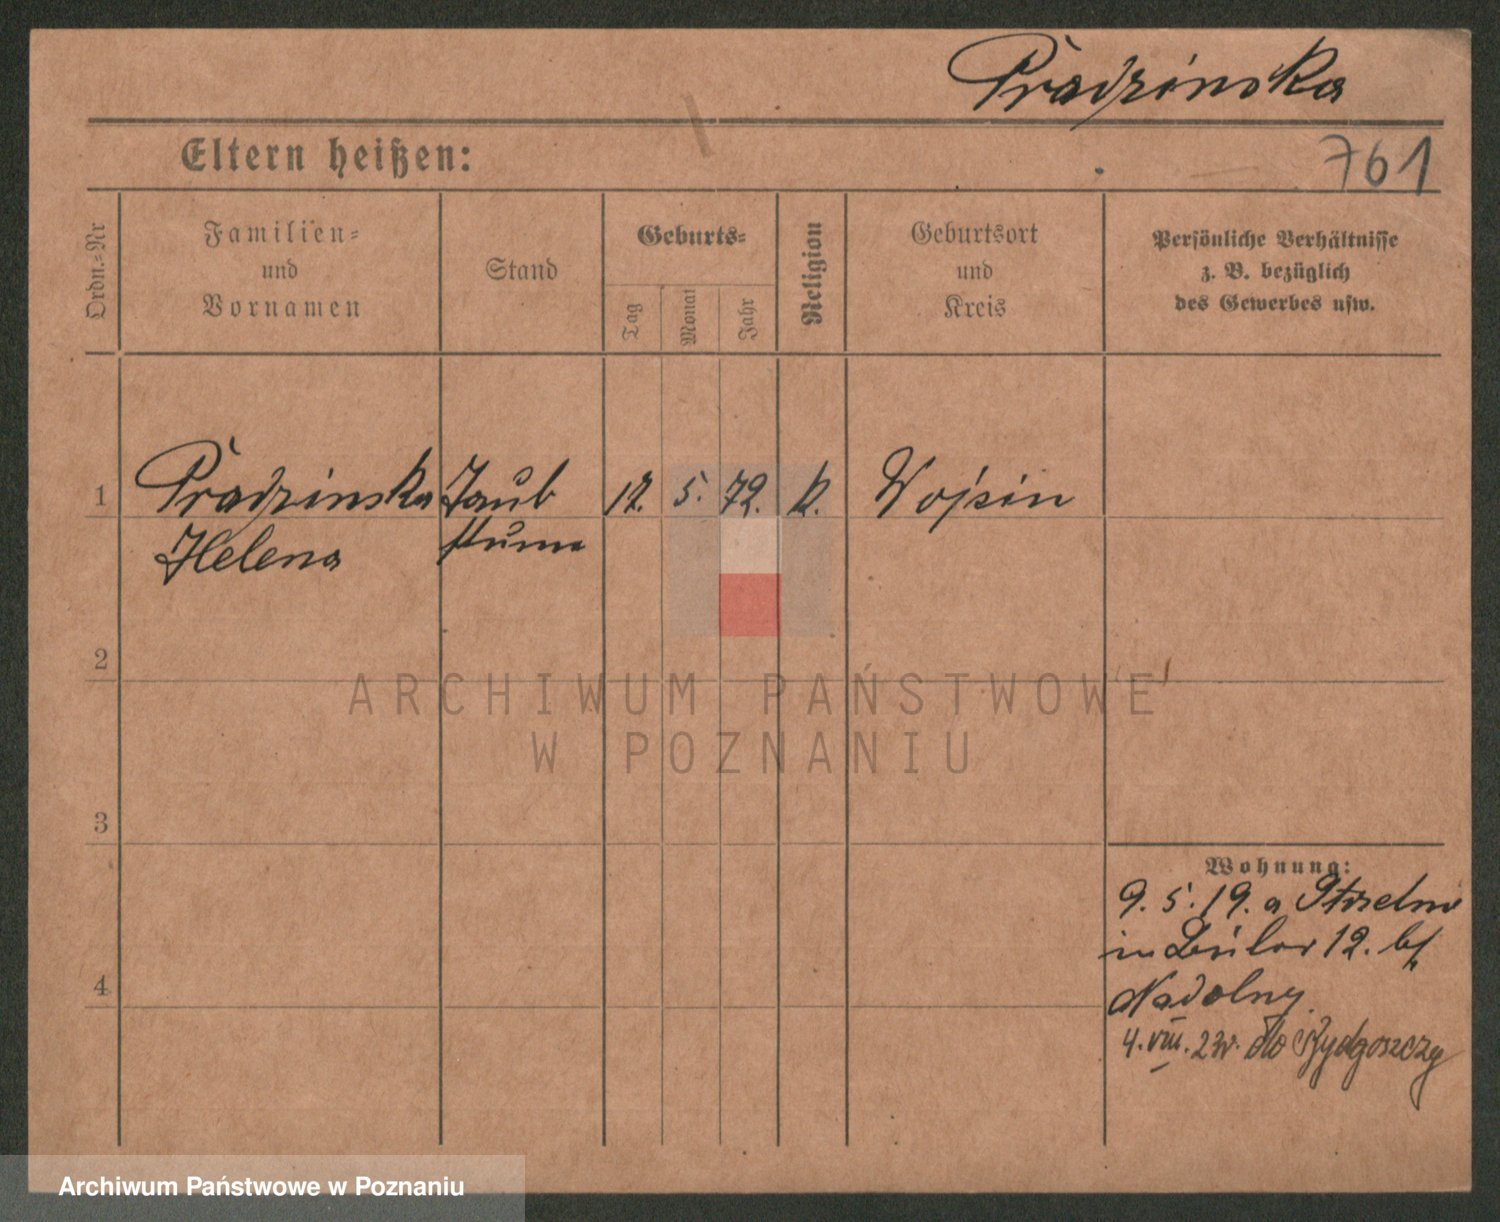 Pradzinska
Eltern heißen:
761
Ordn.-Nr
Familien-
und
Vornamen
Stand
Geburts-
Tag
Monat
Jahr
Religion
Geburtsort
und
Kreis
Persönliche Verhältnisse
z. B. bezüglich
des Gewerbes usw.
1
Pradzinska
Helena
Taub
stumm
17.
5.
72.
k.
Wojcin
2
3
4
Wohnung:
9. 5. 19. a Strelno
in 12. bf
Nadolny
4. VIII. 2 do Bydgoszczy
ARCHIWUM PAŃSTWOWE
W POZNANIU
Archiwum Państwowe w Poznaniu